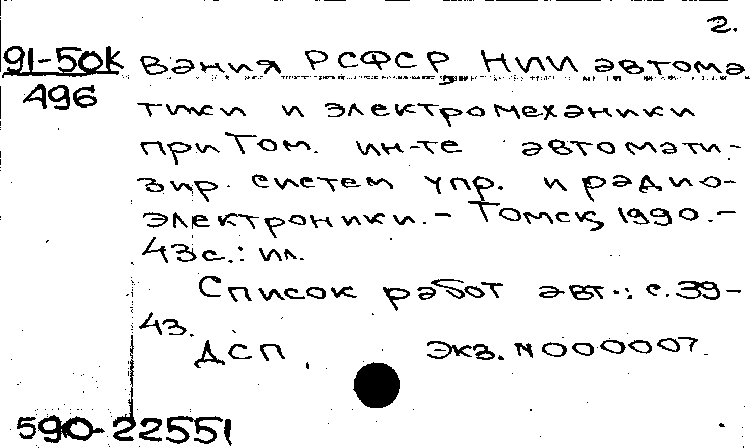 2.
91-50К вания РСФСР, НИИ автома
496 тики и электромеханики
при Том. ин-те автомати-
зир. систем упр. и радио-
электроники. - Томск, 1990. -
43 с.: ил.
Список работ авт.: с. 39-
43.
ДСП. Экз. N 000007.
590-22551